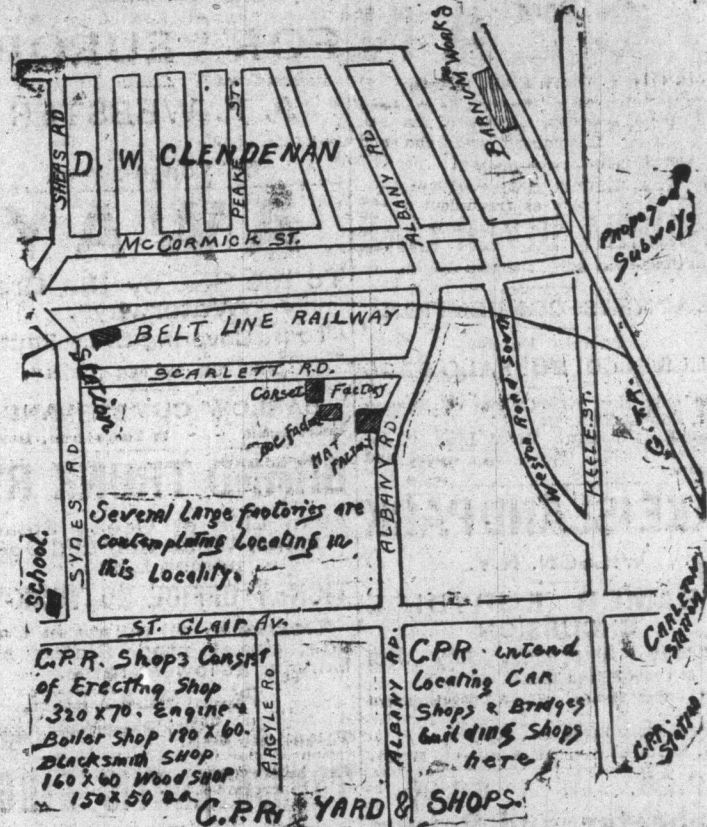 BARNUM WORKS
SHEAS RD
D. W. CLENDENAN
PEAKE ST.
ALBANY RD
McCORMICK ST.
Proposed
Subways
BELT LINE RAILWAY
Station
SCARLETT RD.
Corset Factory
Factory
MAT
FACTORY
ALBANY RD
Weston Road South
KEELE ST.
G.T.R.
SYMES RD
Several Large factories are
contemplating Locating in
this Locality.
School.
ST. CLAIR AV.
CARLETON
STATION
C.P.R. Shops Consist
of Erecting Shop
320 x 70. Engine &
Boiler Shop 180 x 60.
Blacksmith SHOP
160 x 60 Wood SHOP
150 x 50
ARGYLE RD
ALBANY RD.
C.P.R. intend
Locating CAR
Shops & Bridges
building Shops
here
C.P.R. Station
C.P.R. YARD & SHOPS.